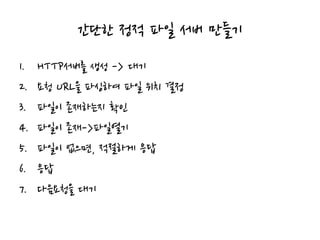 간단한 정적 파일 서버 만들기
1. HTTP서버를 생성 -> 대기
2. 요청 URL을 파싱하여 파일 위치 결정
3. 파일이 존재하는지 확인
4. 파일이 존재->파일열기
5. 파일이 없으면, 적절하게 응답
6. 응답
7. 다음요청을 대기